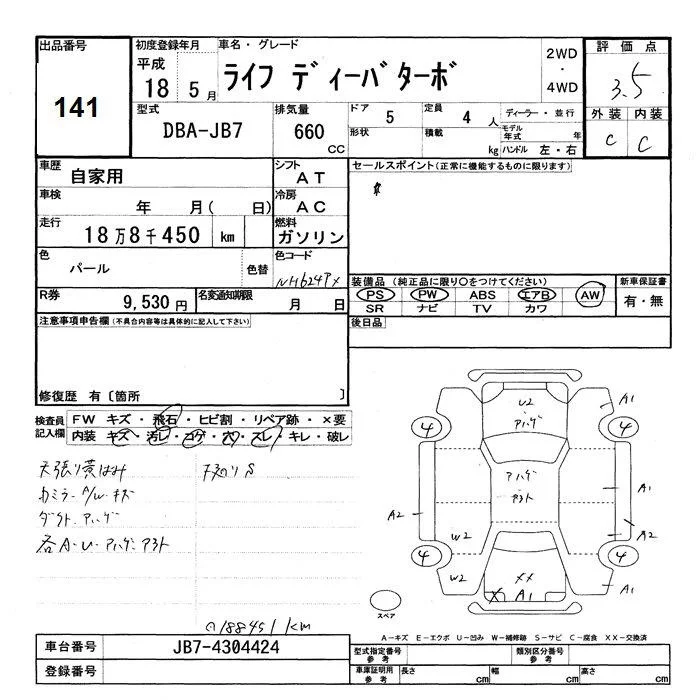 出品番号
141
初度登録年月
平成
18 5月
車名・グレード
ライフ ディーバターボ
2WD
・
4WD
評価点
3.5
外装 内装
C C
型式
DBA-JB7
排気量
660
CC
ドア
5
形状
定員
4人
積載
kg
ディーラー・並行
モデル年式 年
ハンドル 左・右
車歴
自家用
シフト
AT
セールスポイント(正常に機能するものに限ります)
車検
年 月( 日)
冷房
AC
走行
18万8千450 km
燃料
ガソリン
色
パール
色替
色コード
NH624PX
装備品(純正品に限り○をつけてください)
PS PW ABS エアB AW
SR ナビ TV カワ
新車保証書
有・無
R券
9,530円
名変通知期限
月 日
後日品
注意事項申告欄(不具合内容等は具体的に記入して下さい)
修復歴 有〔箇所 〕
検査員記入欄
FW キズ・飛石・ヒビ割・リペア跡・×要
内装 キズ・汚レ・コゲ・穴・スレ・キレ・破レ
天張り黄ばみ
カミラーA/W・キズ
ダクト・アハゲ
各A・U・アハゲ・アヲト
下廻りS
@188451km
U2
アハゲ
アハゲ
アヲト
A1
4
4
A1
A2
A2
W2
W2
4
4
XX
X A1
A1
スペア
A-キズ E-エクボ U-凹み W-補修跡 S-サビ C-腐食 XX-交換済
車台番号
JB7-4304424
登録番号
型式指定番号
参考
類別区分番号
参考
車庫証明用
参考
長さ cm
幅 cm
高さ cm